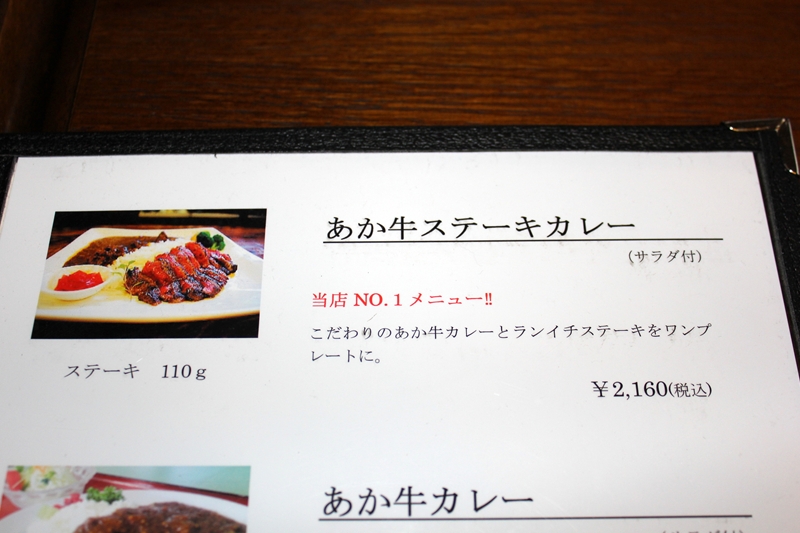 あか牛ステーキカレー
(サラダ付)
当店 NO.1メニュー!!
こだわりのあか牛カレーとランイチステーキをワンプ
レートに。
ステーキ 110g
￥2,160(税込)
あか牛カレー